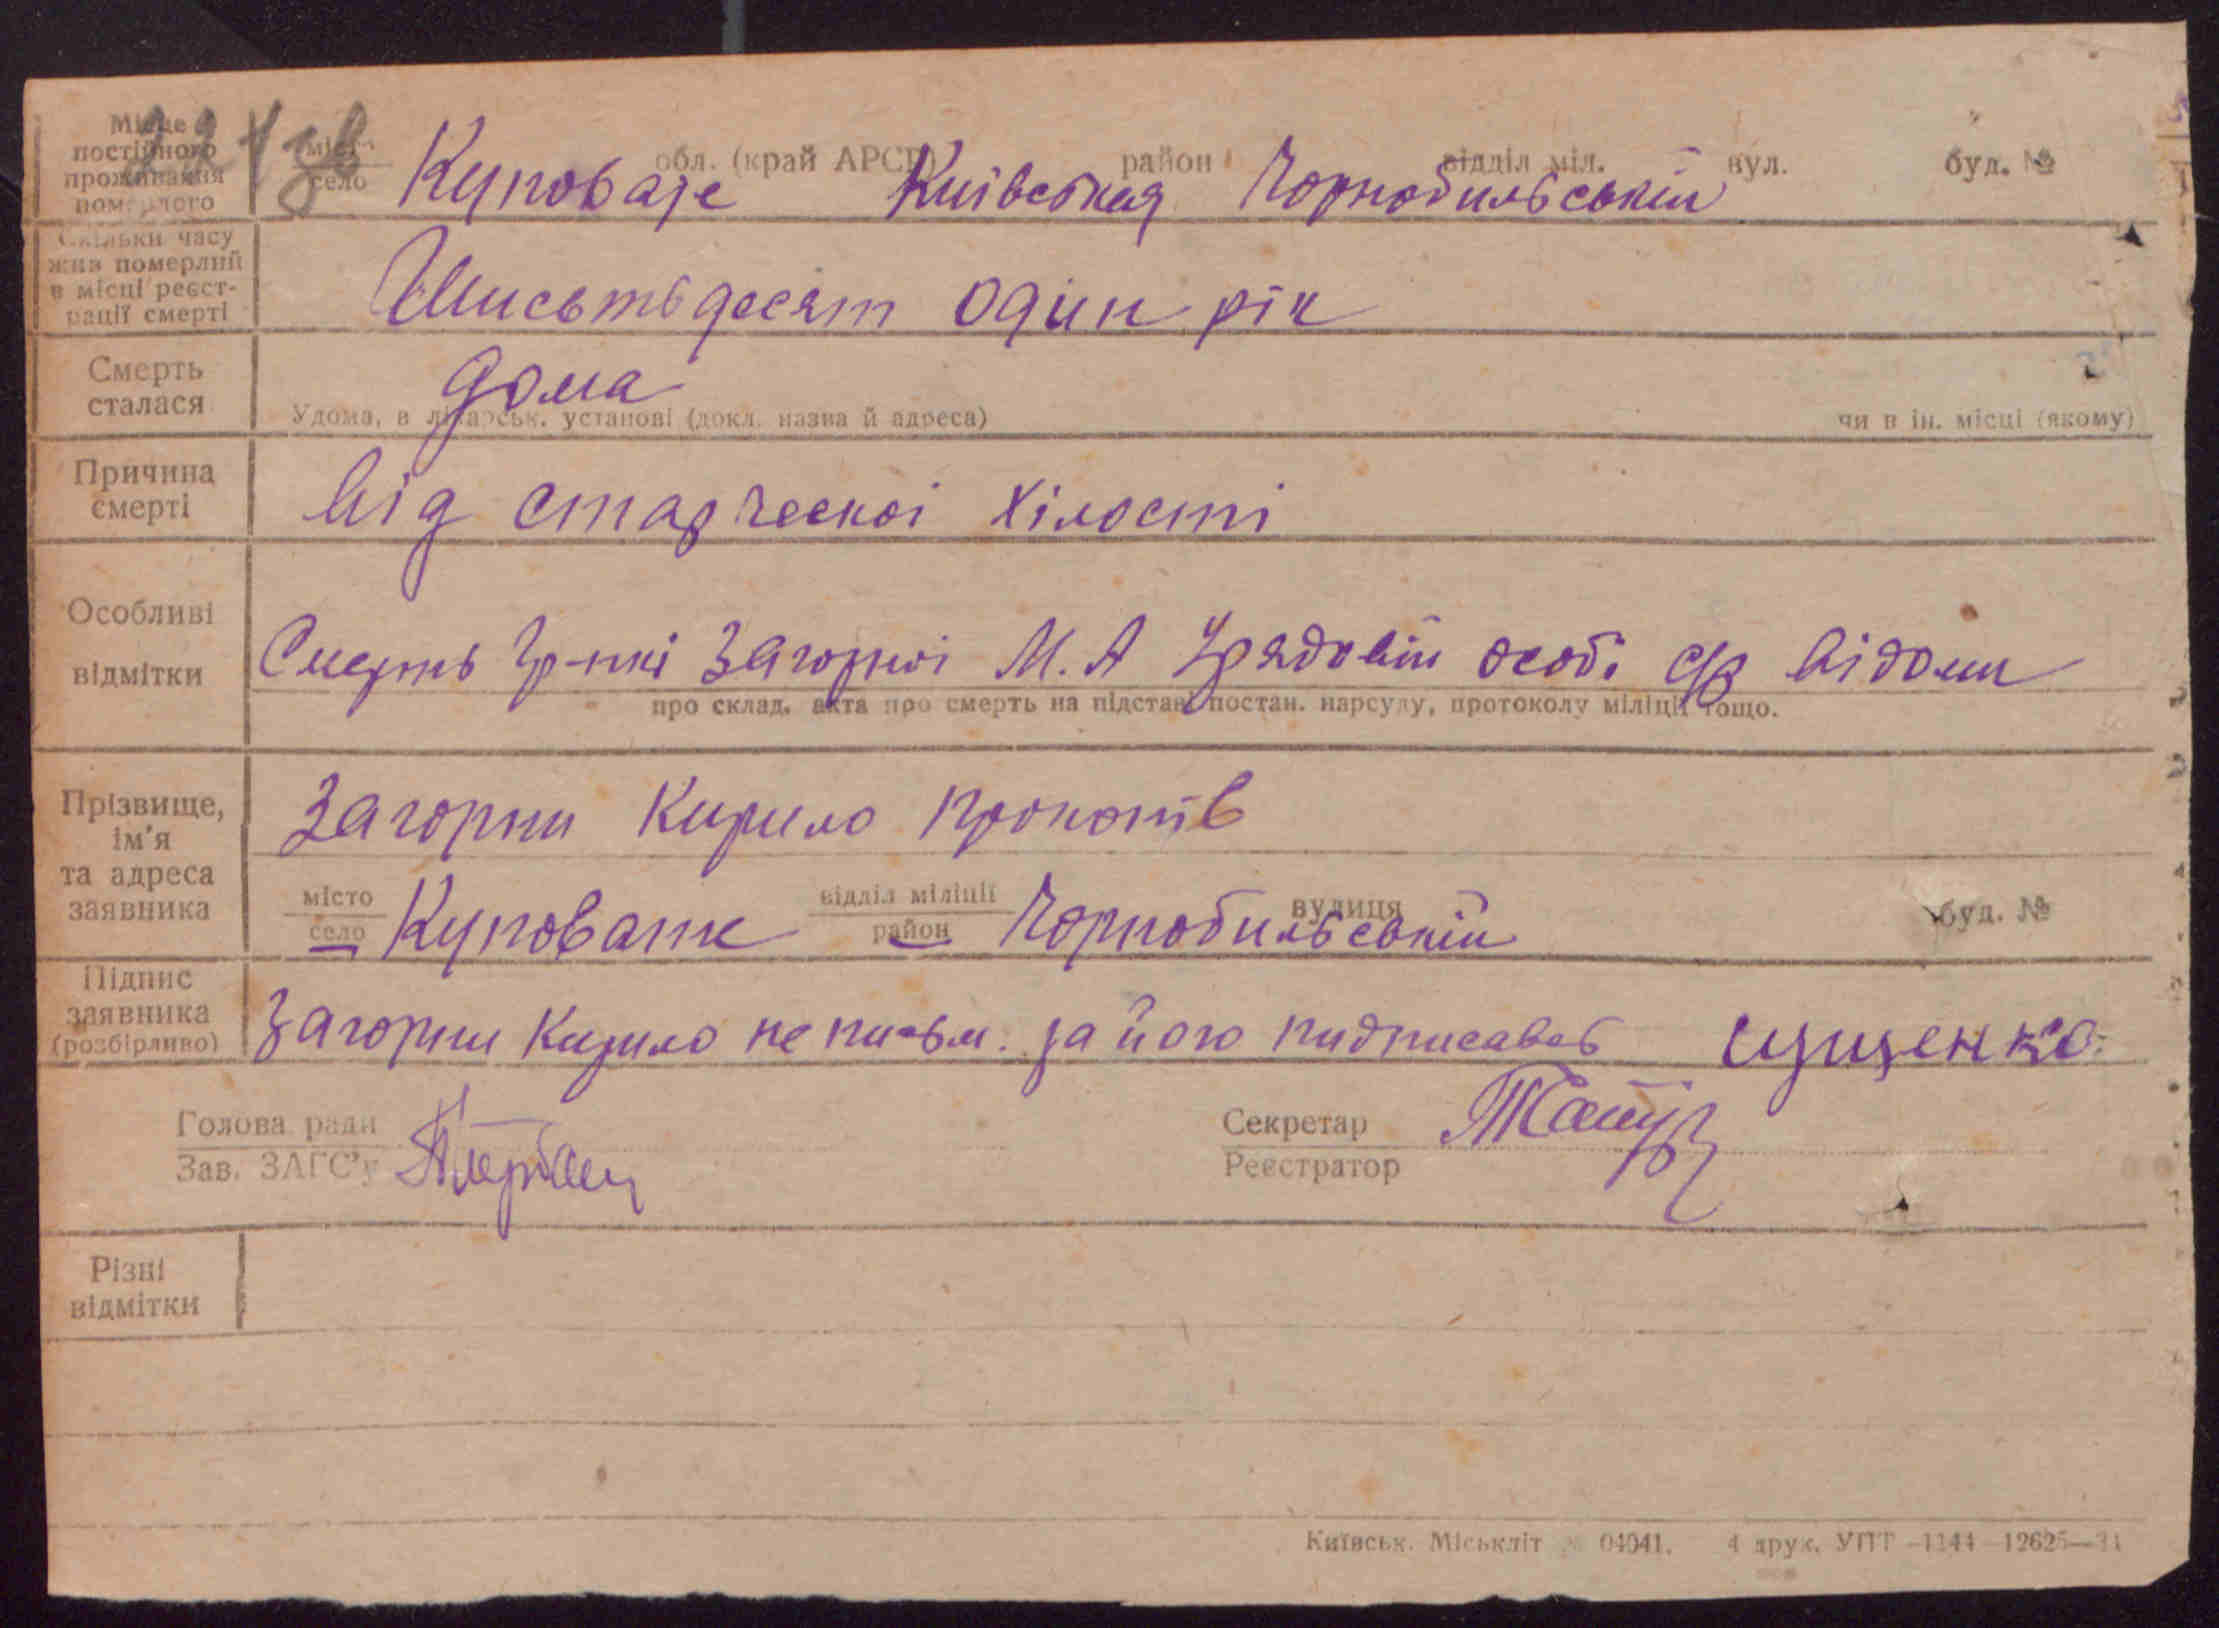 Місце постійного проживання померлого
місто село Куповате обл. (край АРСР) Київська район Чорнобильській відділ міл. вул. буд. №
Скільки часу жив померлий в місці реєстрації смерті
Шисьтьдесят один рік
Смерть сталася
дома
Удома, в лікарськ. установі (докл. назва й адреса) чи в ін. місці (якому)
Причина смерті
від старческоі хілості
Особливі відмітки
Смерть гр-нкі Загорноі М. А Урядовій особі відоми
про склад. акта про смерть на підставі постан. нарсуду, протоколу міліції тощо.
Прізвище, ім'я та адреса заявника
Загорни Кирило
місто село Куповате відділ міліції район Чорнобильській вулиця буд. №
Підпис заявника (розбірливо)
Загорни Кирило неписьм. за його пидписавсь Ищенко
Голова ради
Зав. ЗАГС'у
Секретар
Реєстратор
Різні відмітки
Київськ. Міськліт № 04041. 4 друк. УПТ —1144—12625—34